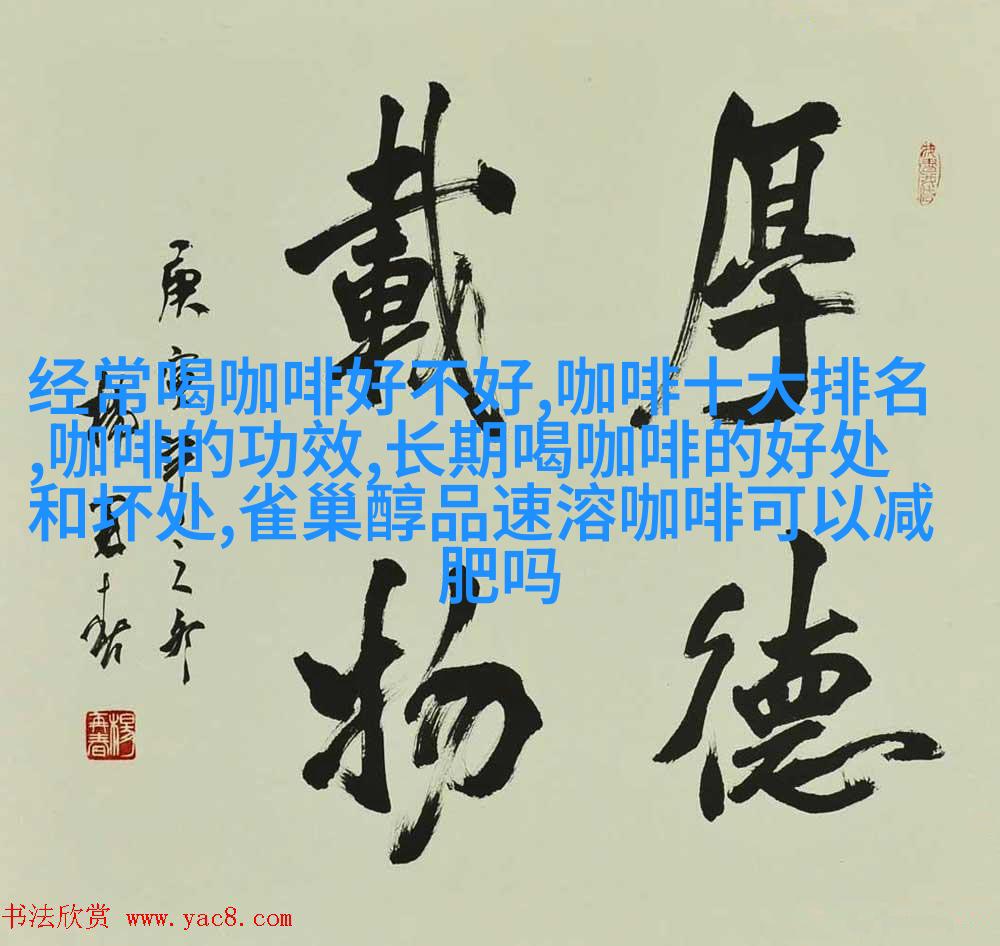 厚德
載物
庚寅
楊再春
经常喝咖啡好不好,咖啡十大排名
,咖啡的功效,长期喝咖啡的好处
和坏处,雀巢醇品速溶咖啡可以减
肥吗
书法欣赏 www.yac8.com